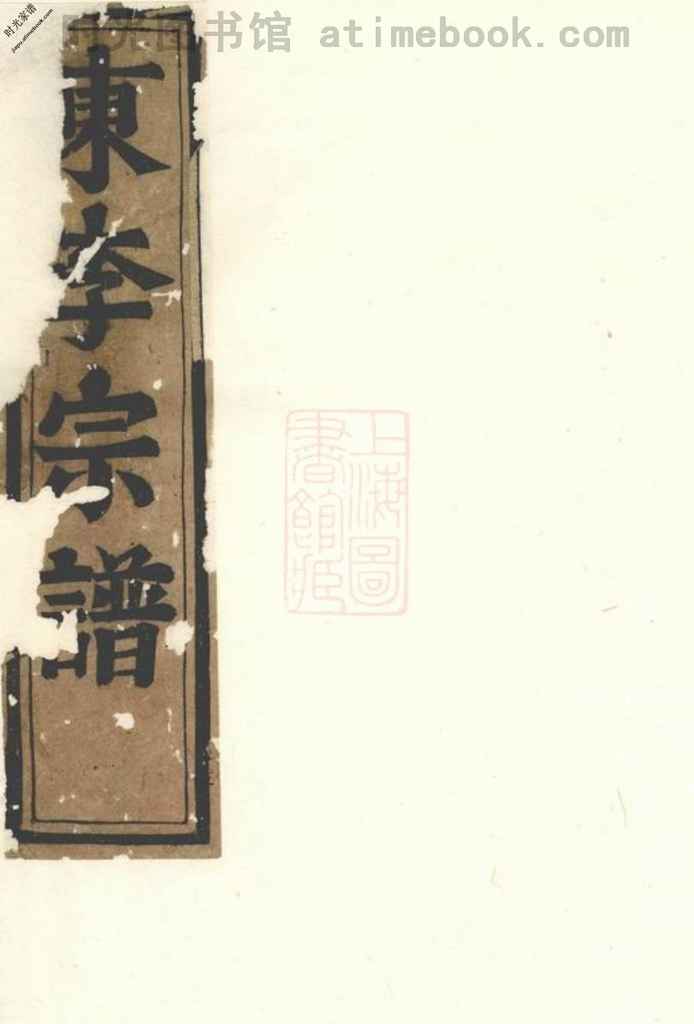 时光家谱
jiapu.atimebook.com
书馆 atimebook.com
東李宗譜
上海圖
書館藏